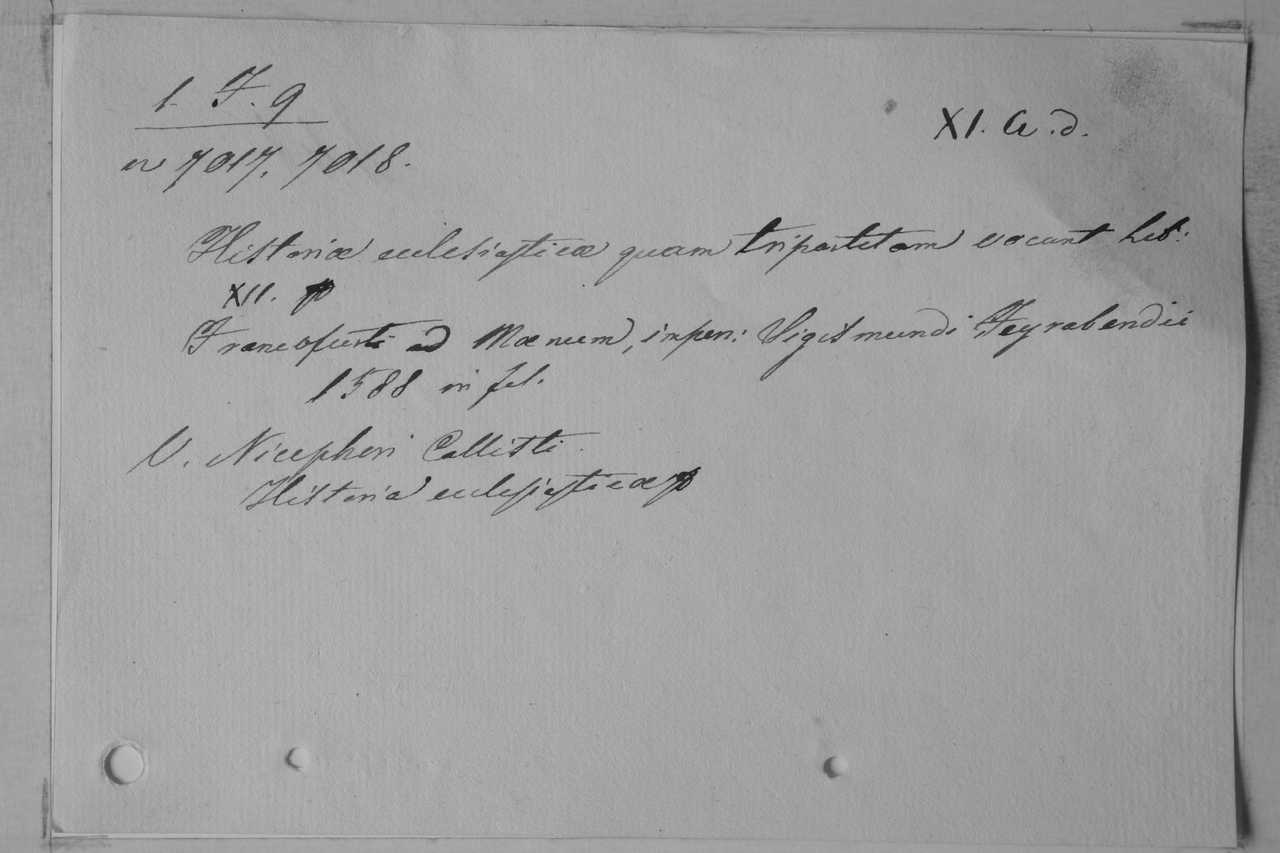 1. F. 9
n 7017, 7018.
XI. a. d.
Historiæ ecclesiasticæ quam tripartitam vocant Lib:
XII. p
Francofurti ad Mœnum, impen: Sigismundi Feyrabendii
1588 in fol.
V. Nicephori Callisti.
Historia ecclesiasticæ p